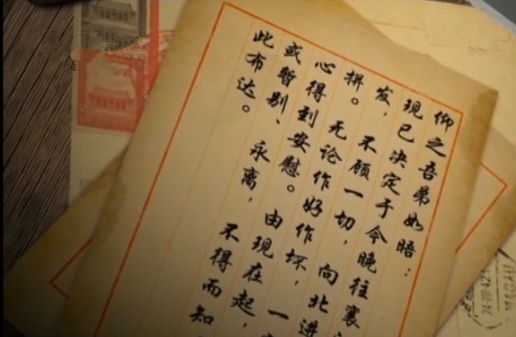 仰之吾弟如晤：
现已决定于今晚往襄
发，不顾一切，向北进
拼。无论作好作坏，一
心得到安慰。由现在起，
或暂别、永离，不得而知
此布达。